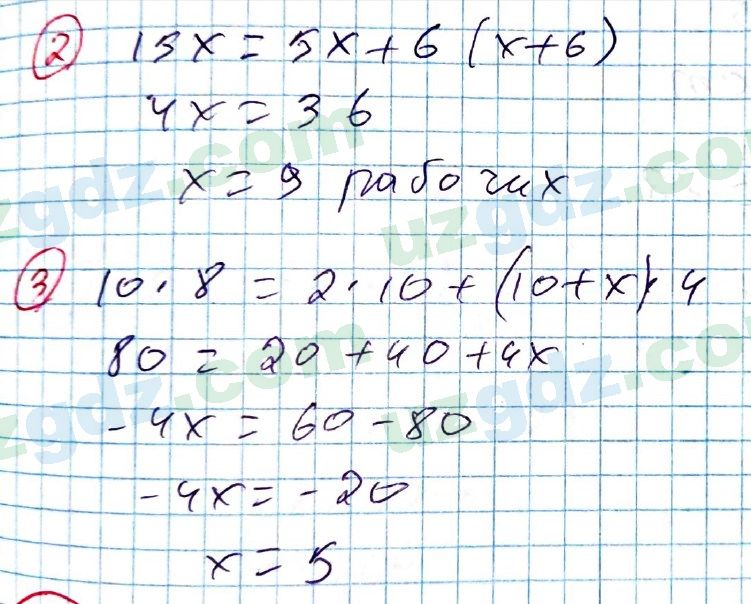 2 15x = 5x + 6 (x+6)
4x = 36
x = 9 рабочих
3 10 · 8 = 2 · 10 + (10+x) · 4
80 = 20 + 40 + 4x
-4x = 60 - 80
-4x = -20
x = 5
uzgdz.com
uzgdz.com
uzgdz.com
uzgdz.com